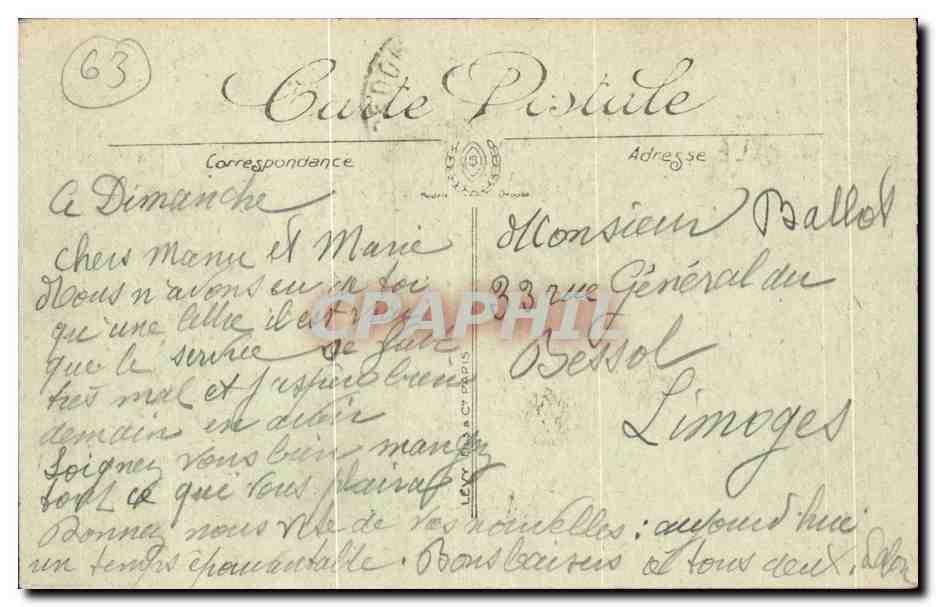 63
Carte Postale
Correspondance
Adresse
Ce Dimanche
Chers Manu et Marie
Nous n'avons eu toi
qu'une lettre il est
que le service se fait
très mal et j'espère bien
demain en avoir
Soignez vous bien mangez
tout ce que vous plaira
Donnez nous vite de vos nouvelles : aujourd'hui
un temps épouvantable. Bons baisers à tous deux.
Monsieur Ballot
33 rue Général du
Bessol
Limoges
LÉVY & Cie PARIS
CPAPHIL